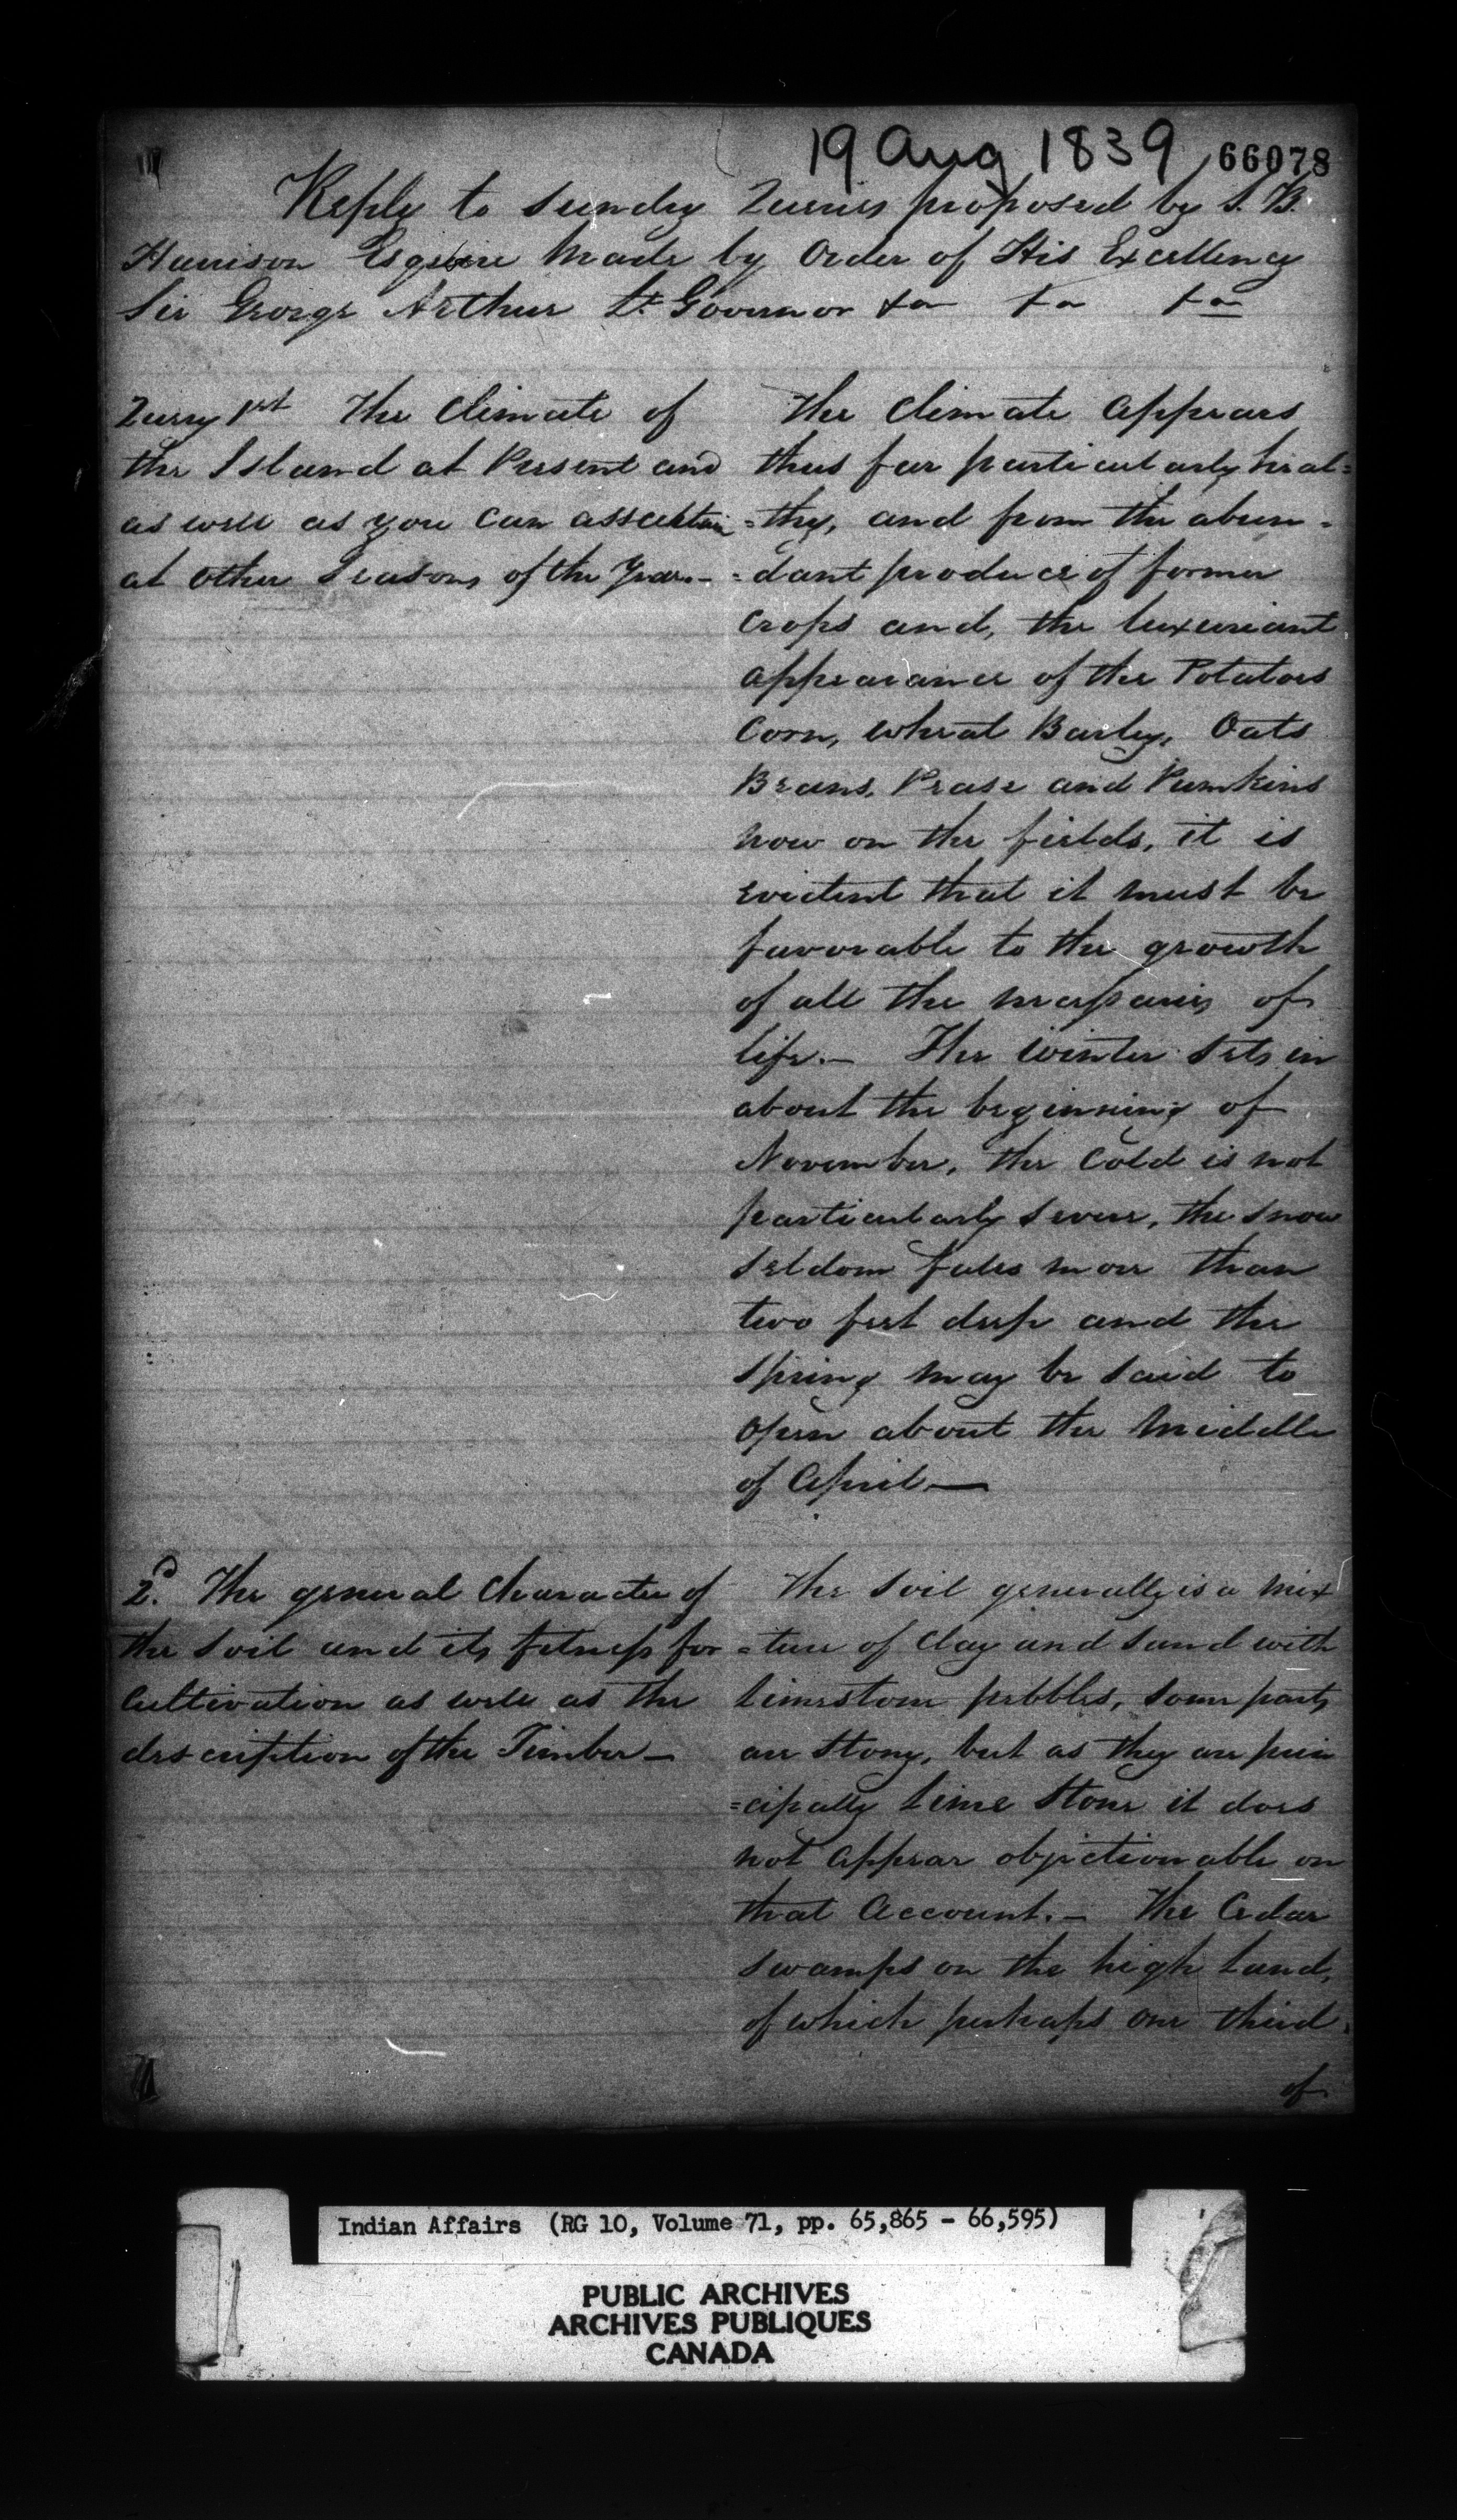 19 Aug 1839 66078
Reply to sundry Queries proposed by S. B.
Harrison Esquire made by Order of His Excellency
Sir George Arthur Lt. Governor &a &a &a
Query 1st The Climate of
the Island at Present and
as well as you can assertain
at other Seasons of the Year.-
The Climate appears
thus far particularly heal=
=thy, and from the abun-
=dant produce of former
crops and, the luxuriant
appearance of the Potatoes
Corn, wheat Barley, Oats
Beans, Pease and Pumkins
now on the fields, it is
evident that it must be
favorable to the growth
of all the necessaries of
life.- The Winter sets in
about the beginning of
November, the Cold is not
particularly severe, the snow
seldom falls more than
two feet deep and the
spring may be said to
open about the Middle
of April —
2d. The general Character of
the Soil and its fitness for
Cultivation as well as the
description of the Timber —
The Soil generally is a mix
=ture of Clay and Sand with
limestone pebbles, some parts
are stony, but as they are prin
=cipally lime stone it does
not appear objectionable on
that account.- The Cedar
swamps on the high land,
of which perhaps one third
of
Indian Affairs (RG 10, Volume 71, pp. 65,865 - 66,595)
PUBLIC ARCHIVES
ARCHIVES PUBLIQUES
CANADA